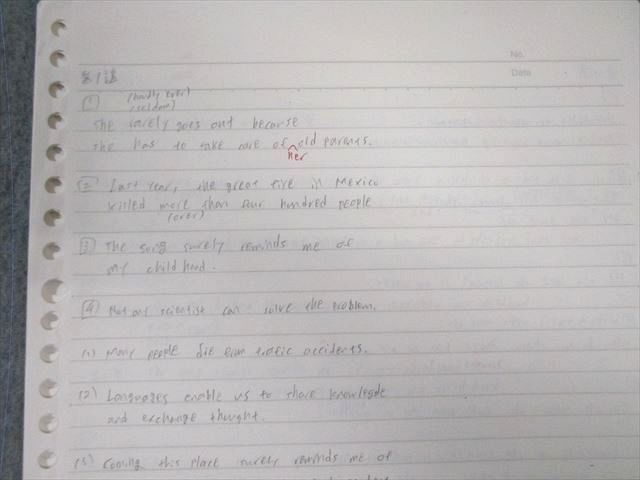 No.
Date
第1講
(hardly ever)
(seldom)
[1]
She rarely goes out because
she has to take care of old parents.
her
[2] Last year, the great fire in Mexico
killed more than four hundred people
(over)
[3] The song surely reminds me of
my childhood.
[4] Not any scientist can solve the problem.
(1) Many people die from traffic accidents.
(2) Languages enable us to share knowlegde
and exchange thought.
(3) Coming this place surely reminds me of